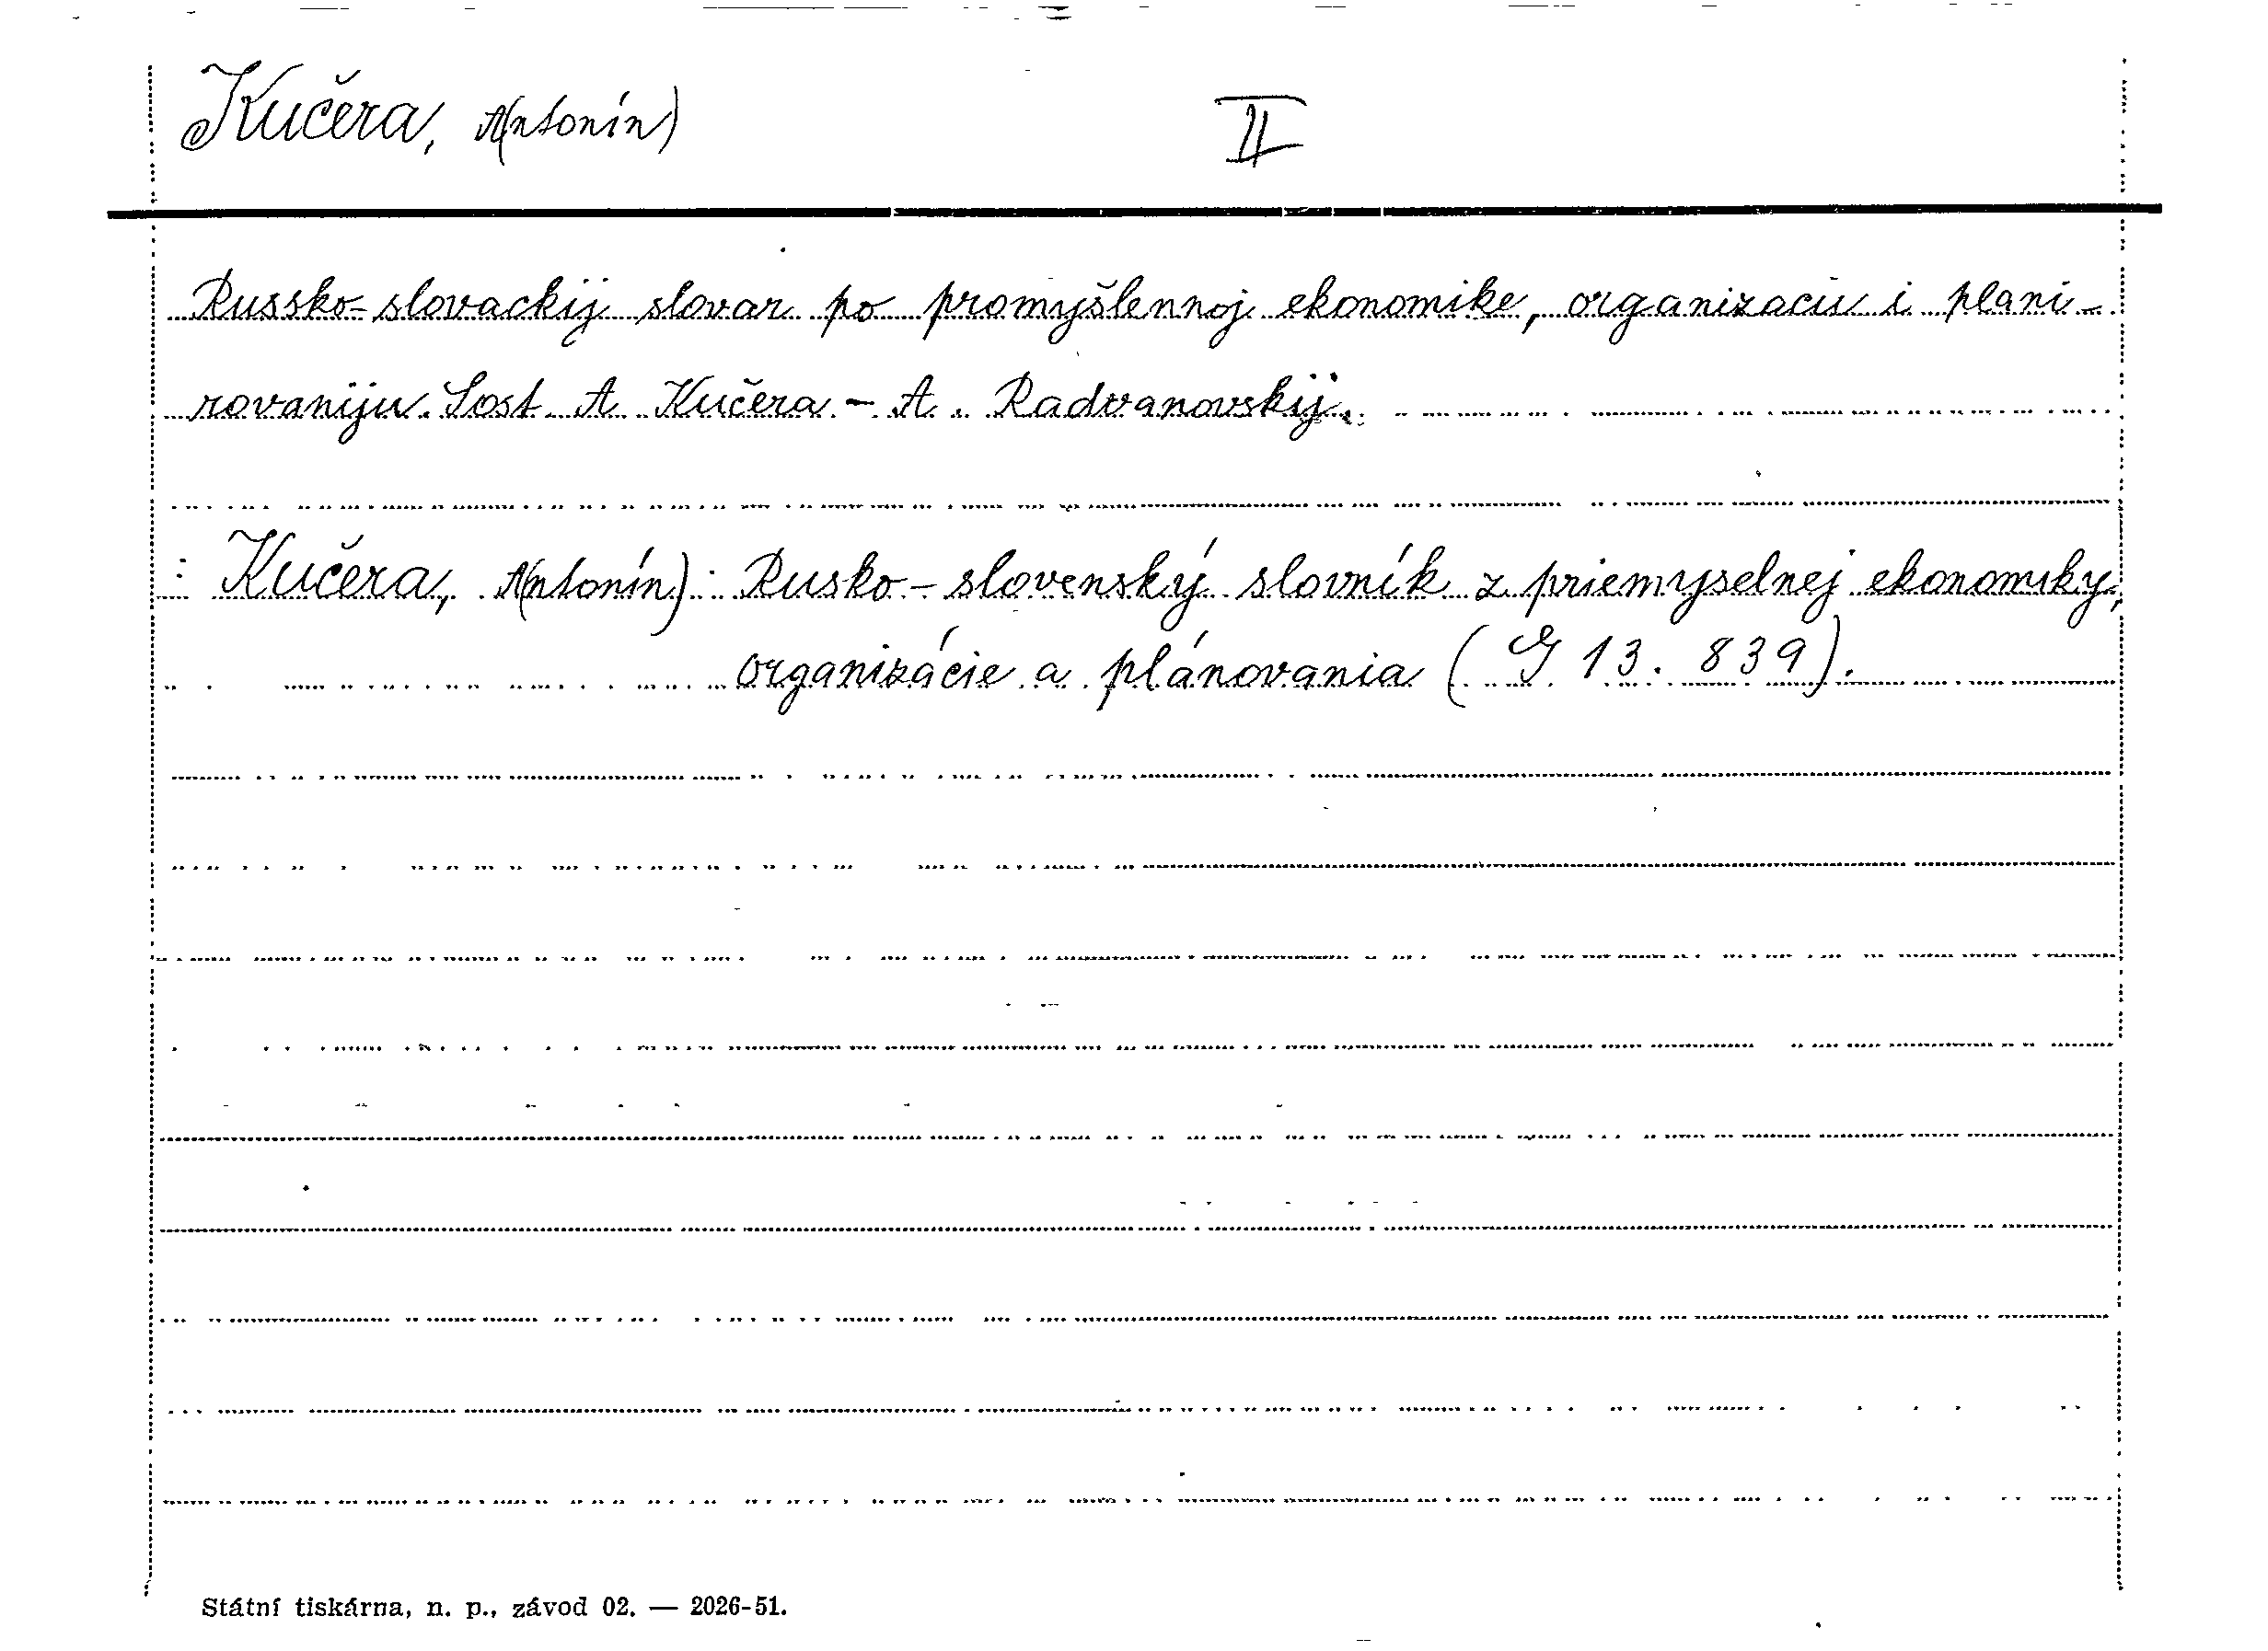 Kučera, A(ntonín) II
Russko-slovackij slovar po promyšlennoj ekonomike, organizacii i plani-
rovaniju. Sost. A. Kučera - A. Radvanovskij.
: Kučera, A(ntonín): Rusko-slovenský slovník z priemyselnej ekonomiky,
organizácie a plánovania (I 13.839).
Státní tiskárna, n. p., závod 02. — 2026-51.